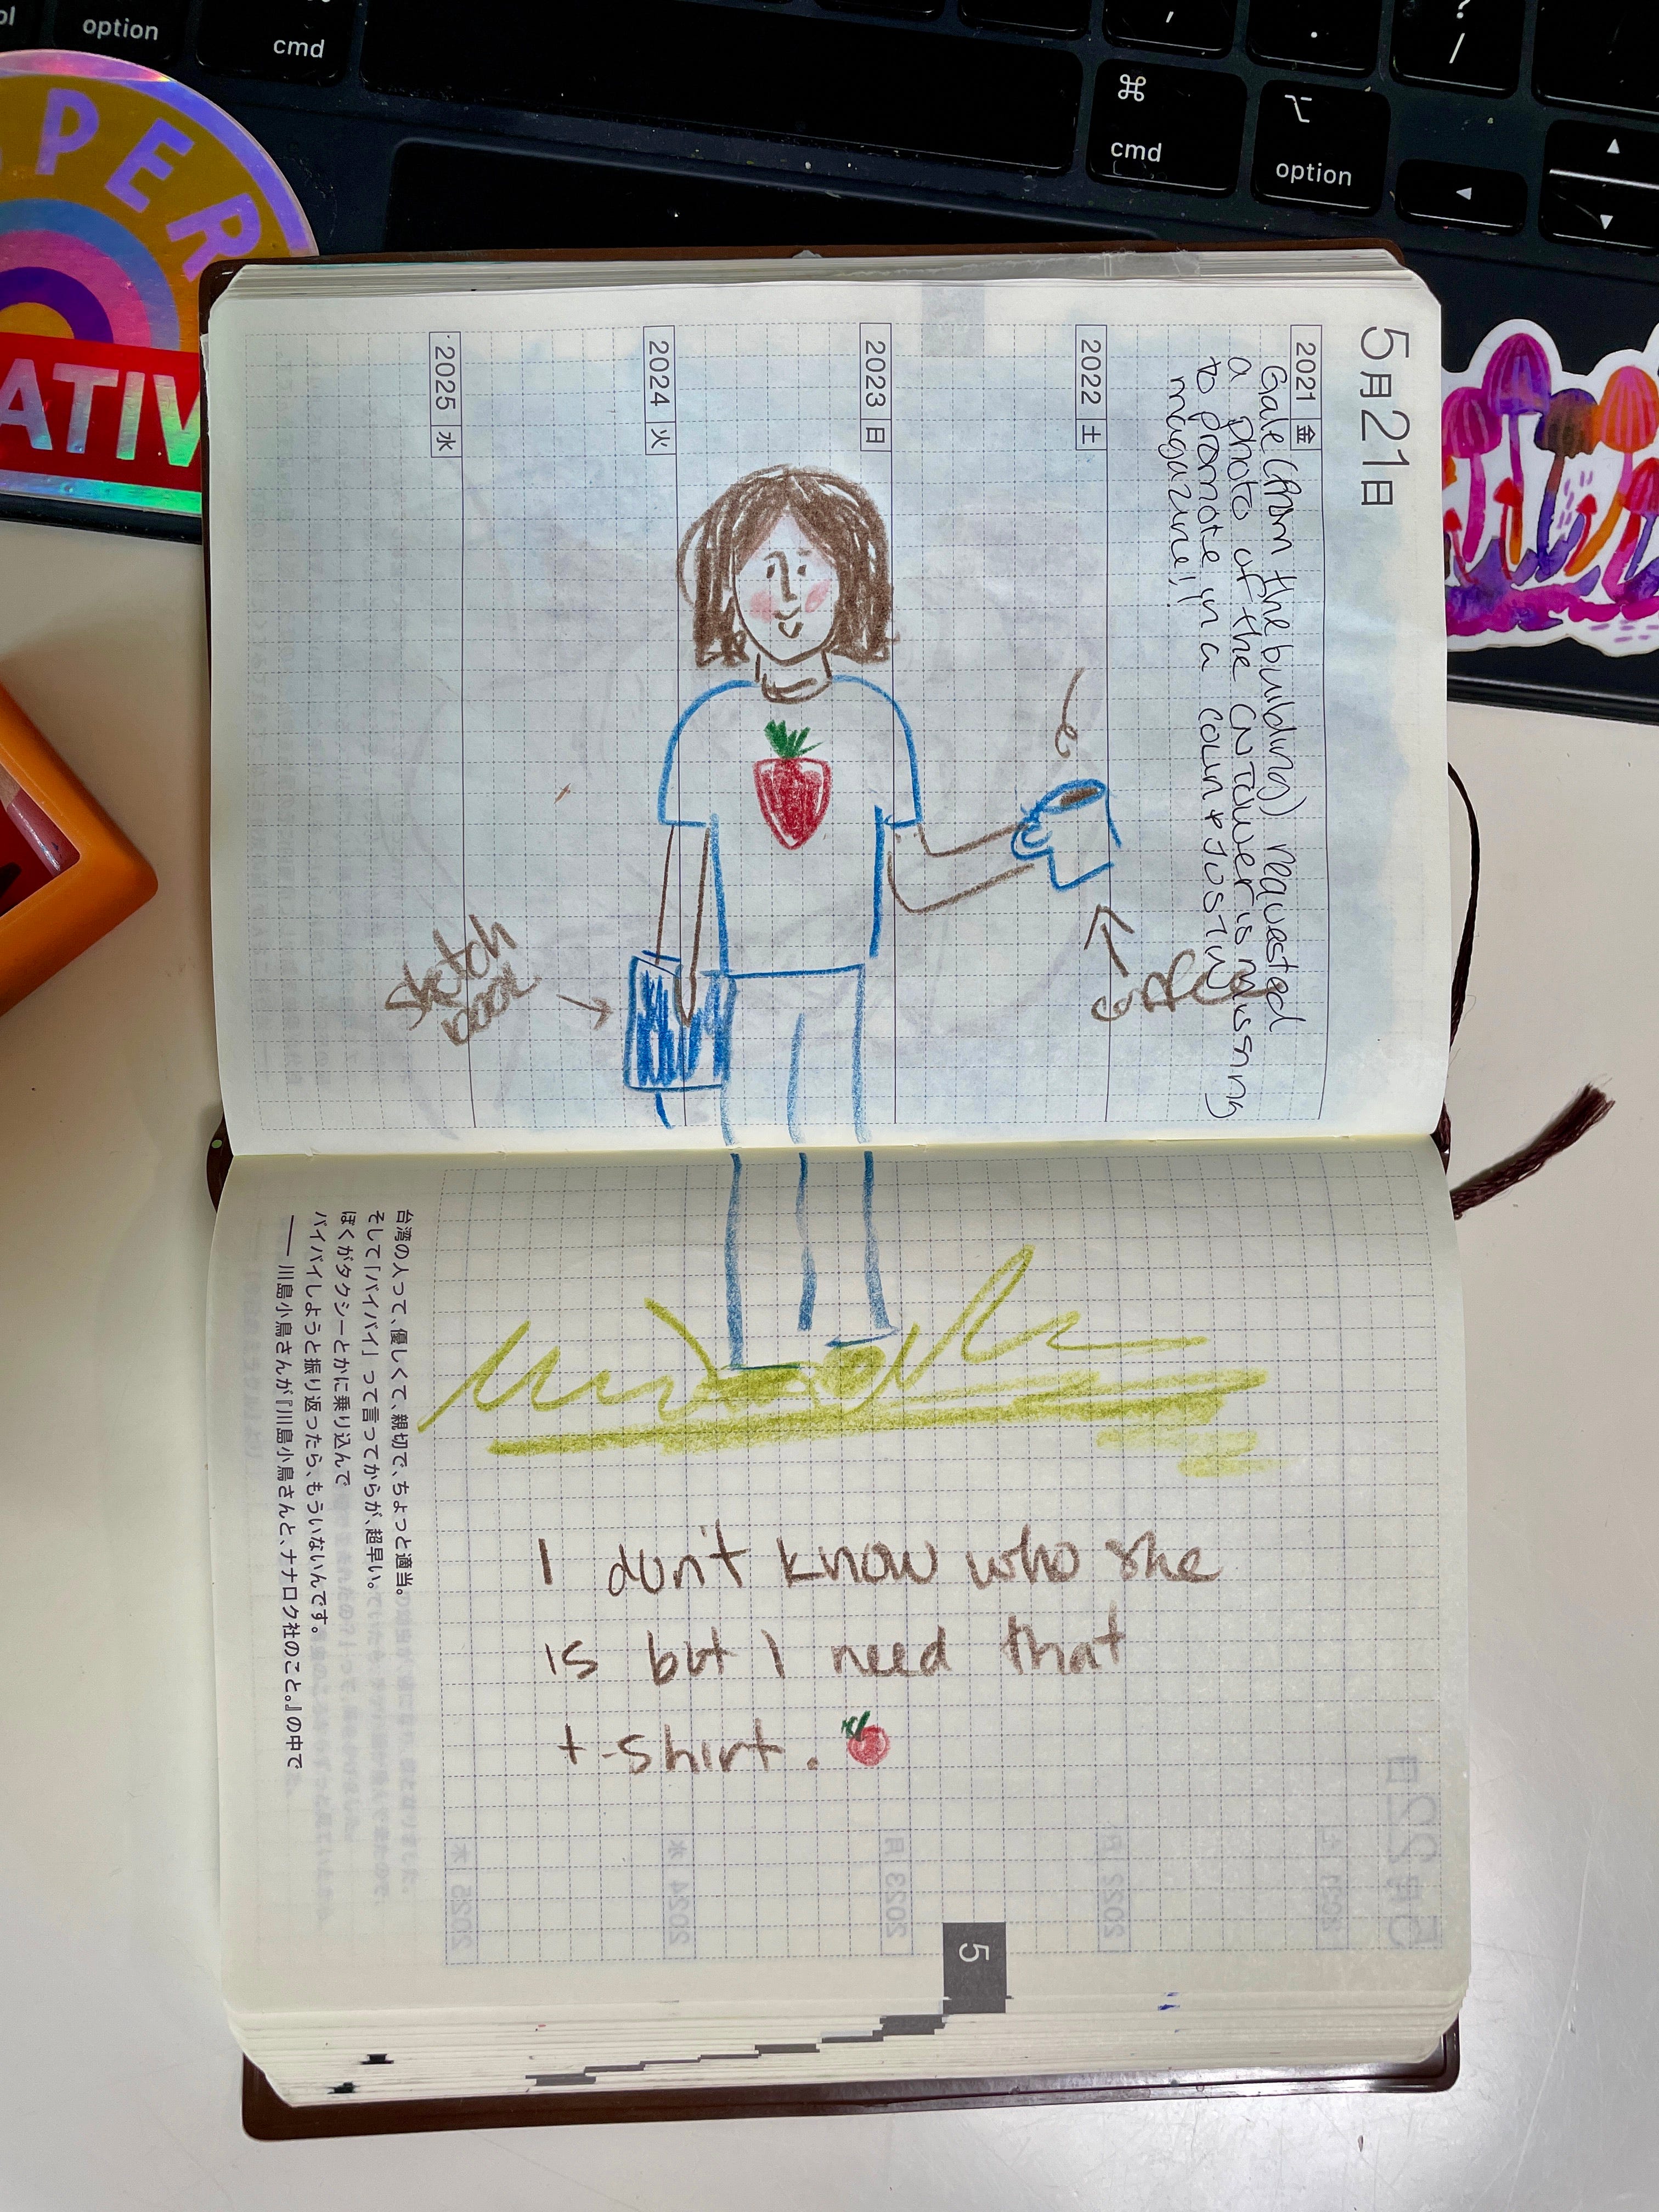 option
cmd
,
.
?
/
⌘
cmd
⌥
option
◀
▲
▼
PER
ATIV
5月21日
2021 金
2022 土
2023 日
2024 火
2025 水
Gale (from the building) requested
a photo of the CN Tower is missing
to promote in a
magazine!!
coffee
sketch
book
I don't know who she
is but I need that
t-shirt.
台湾の人って、優しくて、親切で、ちょっと適当。
そして「バイバイ」って言ってからが、超早い。
ぼくがタクシーとかに乗り込んで
バイバイしようと振り返ったら、もういないんです。
—— 川島小鳥さんが『川島小鳥さんと、ナナロク社のこと。』の中で
5